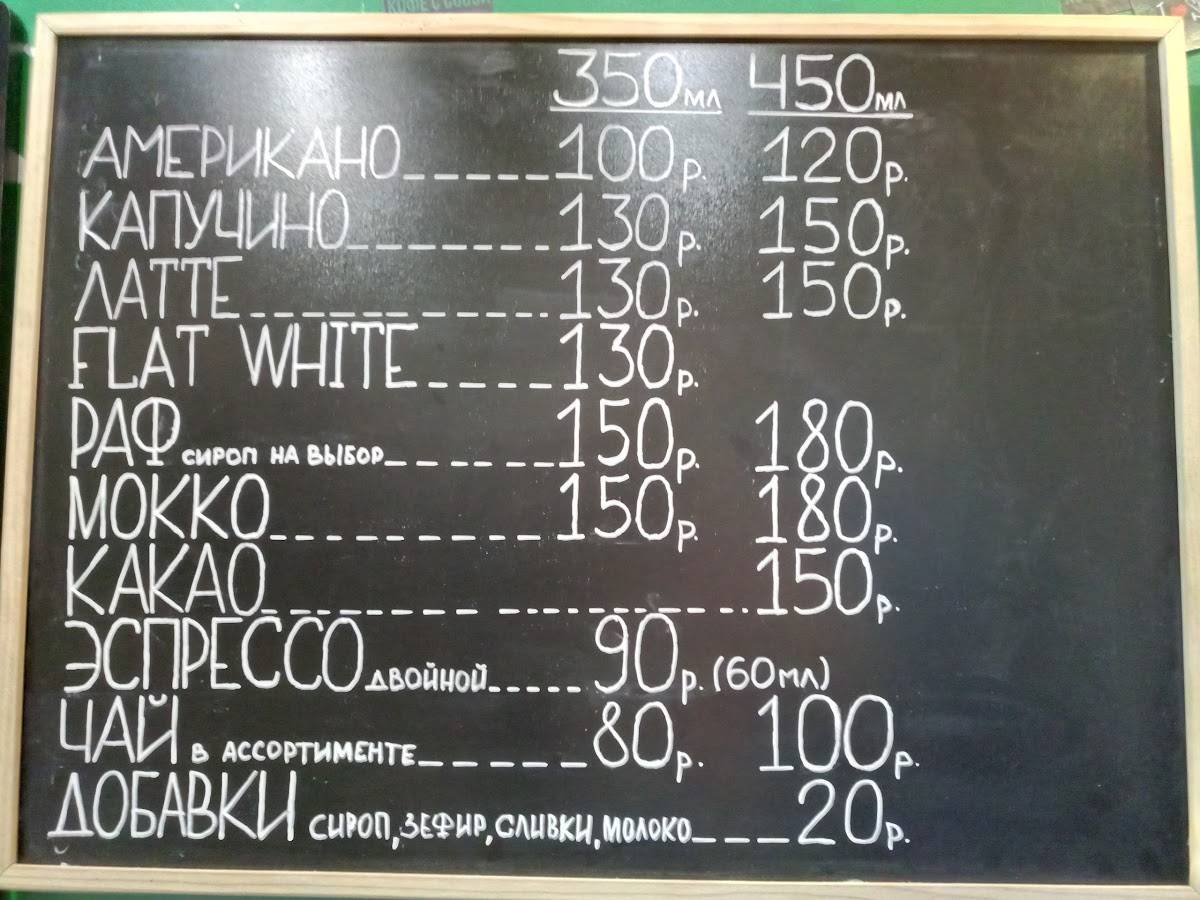 КОФЕ С СОБОЙ
350мл 450мл
АМЕРИКАНО_____100р. 120р.
КАПУЧИНО_______130р. 150р.
ЛАТТЕ__________130р. 150р.
FLAT WHITE____130р.
РАФ СИРОП НА ВЫБОР______150р. 180р.
МОККО_________150р. 180р.
КАКАО_________________150р.
ЭСПРЕССО ДВОЙНОЙ_____90р. (60мл)
ЧАЙ В АССОРТИМЕНТЕ_____80р. 100р.
ДОБАВКИ СИРОП, ЗЕФИР, СЛИВКИ, МОЛОКО___20р.